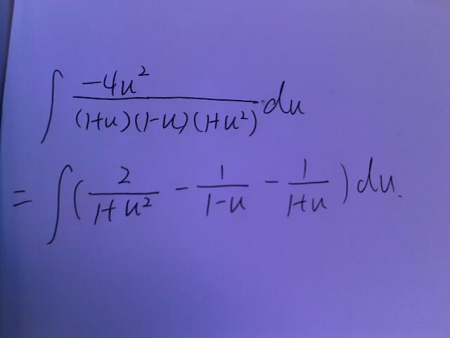 ∫ \frac{-4u^2}{(1+u)(1-u)(1+u^2)} du
= ∫ ( \frac{2}{1+u^2} - \frac{1}{1-u} - \frac{1}{1+u} ) du.